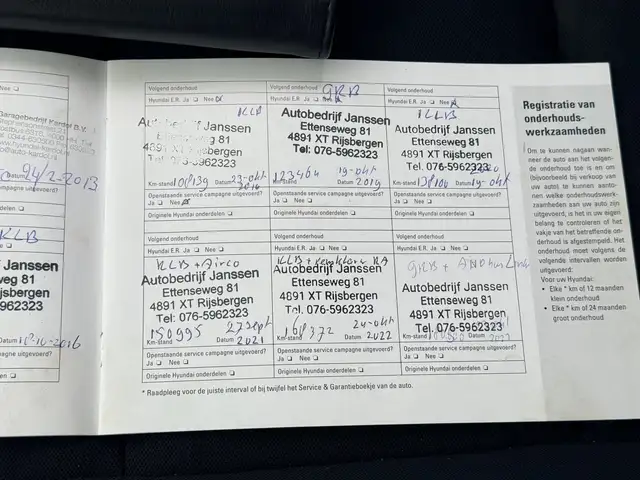 Nee
Garagebedrijf Kardol B.V.
24/2-2013
campagne uitgevoerd?
KLB
f Janssen
eg 81
ijsbergen
962323
Datum 18-10-2016
uitgevoerd?
Volgend onderhoud
Hyundai E.R. Ja Nee
KLB
Autobedrijf Janssen
Ettenseweg 81
4891 XT Rijsbergen
Tel: 076-5962323
Km-stand 108139 Datum 23-okt
Openstaande service campagne uitgevoerd?
Ja Nee
Originele Hyundai onderdelen
Volgend onderhoud
GRB
Hyundai E.R. Ja Nee
Autobedrijf Janssen
Ettenseweg 81
4891 XT Rijsbergen
Tel: 076-5962323
123464 Datum 19-okt
2019
Openstaande service campagne uitgevoerd?
Ja Nee
Originele Hyundai onderdelen
Volgend onderhoud
Hyundai E.R. Ja Nee
KLB
Autobedrijf Janssen
Ettenseweg 81
4891 XT Rijsbergen
Tel: 076-5962323
2020
Km-stand Datum 19-okt
Openstaande service campagne uitgevoerd?
Ja Nee
Originele Hyundai onderdelen
Volgend onderhoud
Hyundai E.R. Ja Nee
KLB + Airco
Autobedrijf Janssen
Ettenseweg 81
4891 XT Rijsbergen
Tel. 076-5962323
150995 27 sept
Km-stand Datum 2021
Openstaande service campagne uitgevoerd?
Ja Nee
Originele Hyundai onderdelen
Volgend onderhoud
Hyundai E.R. Ja Nee
KLB + RA
Autobedrijf Janssen
Ettenseweg 81
4891 XT Rijsbergen
Tel: 076-5962323
24-okt
Km-stand 372 Datum 2022
Openstaande service campagne uitgevoerd?
Ja Nee
Originele Hyundai onderdelen
Volgend onderhoud
Hyundai E.R. Ja Nee
GRB +
Autobedrijf Janssen
Ettenseweg 81
4891 XT Rijsbergen
Tel. 076-5962323
Km-stand Datum
Openstaande service campagne uitgevoerd?
Ja Nee
Originele Hyundai onderdelen
* Raadpleeg voor de juiste interval of bij twijfel het Service & Garantieboekje van de auto.
Registratie van
onderhouds-
werkzaamheden
Om te kunnen nagaan wan-
neer de auto aan het volgen-
de onderhoud toe is en om
(bijvoorbeeld bij verkoop van
uw auto) te kunnen aanto-
nen welke onderhoudswerk-
zaamheden aan uw auto zijn
uitgevoerd, is het in uw eigen
belang te controleren of het
vakje van het betreffende on-
derhoud is afgestempeld. Het
onderhoud moet volgens de
volgende intervallen worden
uitgevoerd:
Voor uw Hyundai:
• Elke * km of 12 maanden
klein onderhoud
• Elke * km of 24 maanden
groot onderhoud